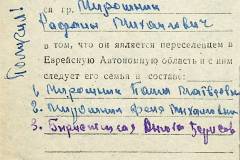 Получил!
ся гр. Мирошник
Рафаил Михайлович
в том, что он является переселенцем в
Еврейскую Автономную область и с ним
следует его семья в составе:
1. Мирошник Матвеевна
2. Мирошник Фрня Михайловна
3. Борисов